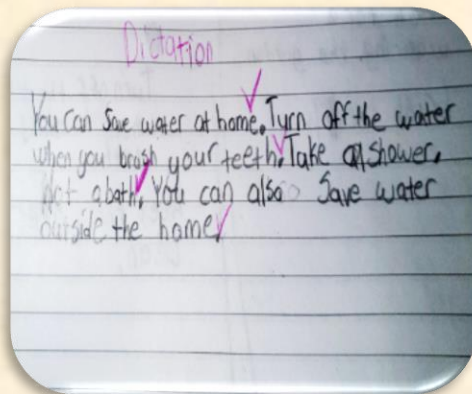 Dictation
You can Save water at home. Turn off the water
when you brush your teeth. Take a shower,
Not a bath. You can also Save water
outside the home.